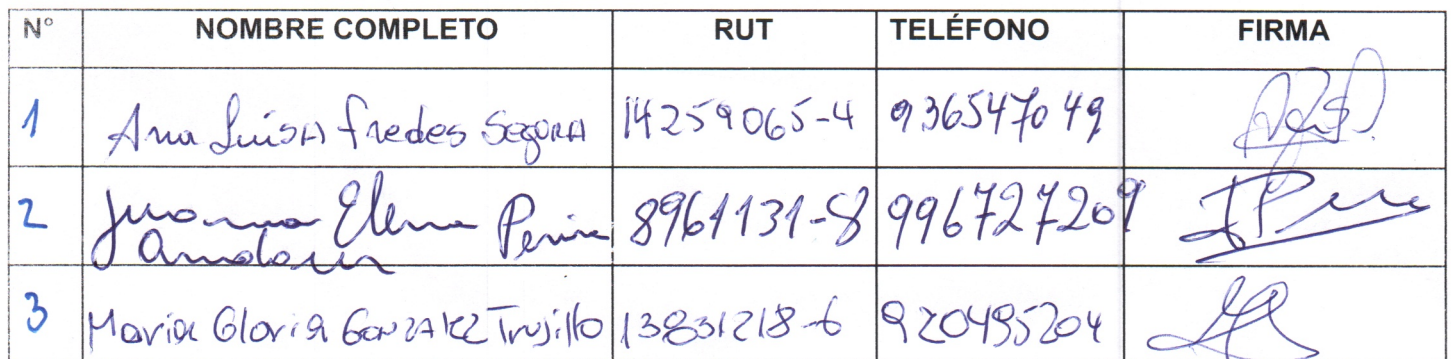 N° NOMBRE COMPLETO RUT TELÉFONO FIRMA
1 Ana Luisa Fredes Segura 14259065-4 936547049
2 Juana Elena 8961131-8 996727209
3 Maria Gloria Gonzalez Trujillo 13831218-6 920495204